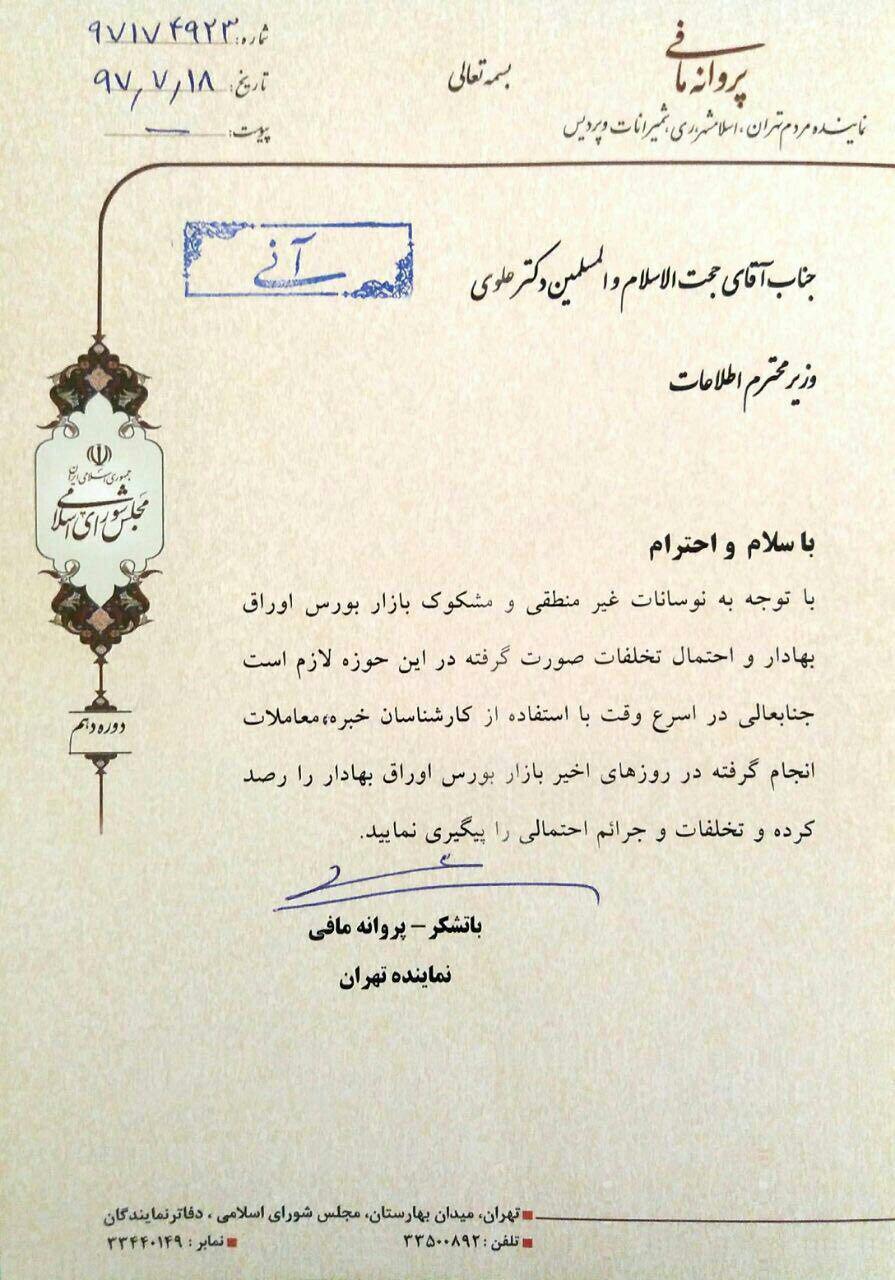 پروانه مافی
نماینده مردم تهران، اسلامشهر، ری، شمیرانات و پردیس
بسمه تعالی
شماره: ۹۷۱۷۴۹۲۳
تاریخ: ۹۷٫۷٫۱۸
پیوست: —
آنی
جناب آقای حجت الاسلام و المسلمین دکتر علوی
وزیر محترم اطلاعات
جمهوری اسلامی ایران
مجلس شورای اسلامی
دوره دهم
با سلام و احترام
با توجه به نوسانات غیر منطقی و مشکوک بازار بورس اوراق
بهادار و احتمال تخلفات صورت گرفته در این حوزه لازم است
جنابعالی در اسرع وقت با استفاده از کارشناسان خبره،معاملات
انجام گرفته در روزهای اخیر بازار بورس اوراق بهادار را رصد
کرده و تخلفات و جرائم احتمالی را پیگیری نمایید.
باتشکر – پروانه مافی
نماینده تهران
تهران، میدان بهارستان، مجلس شورای اسلامی ، دفاتر نمایندگان
تلفن : ۳۳۵۰۰۸۹۲ نمابر : ۳۳۴۴۰۱۴۹